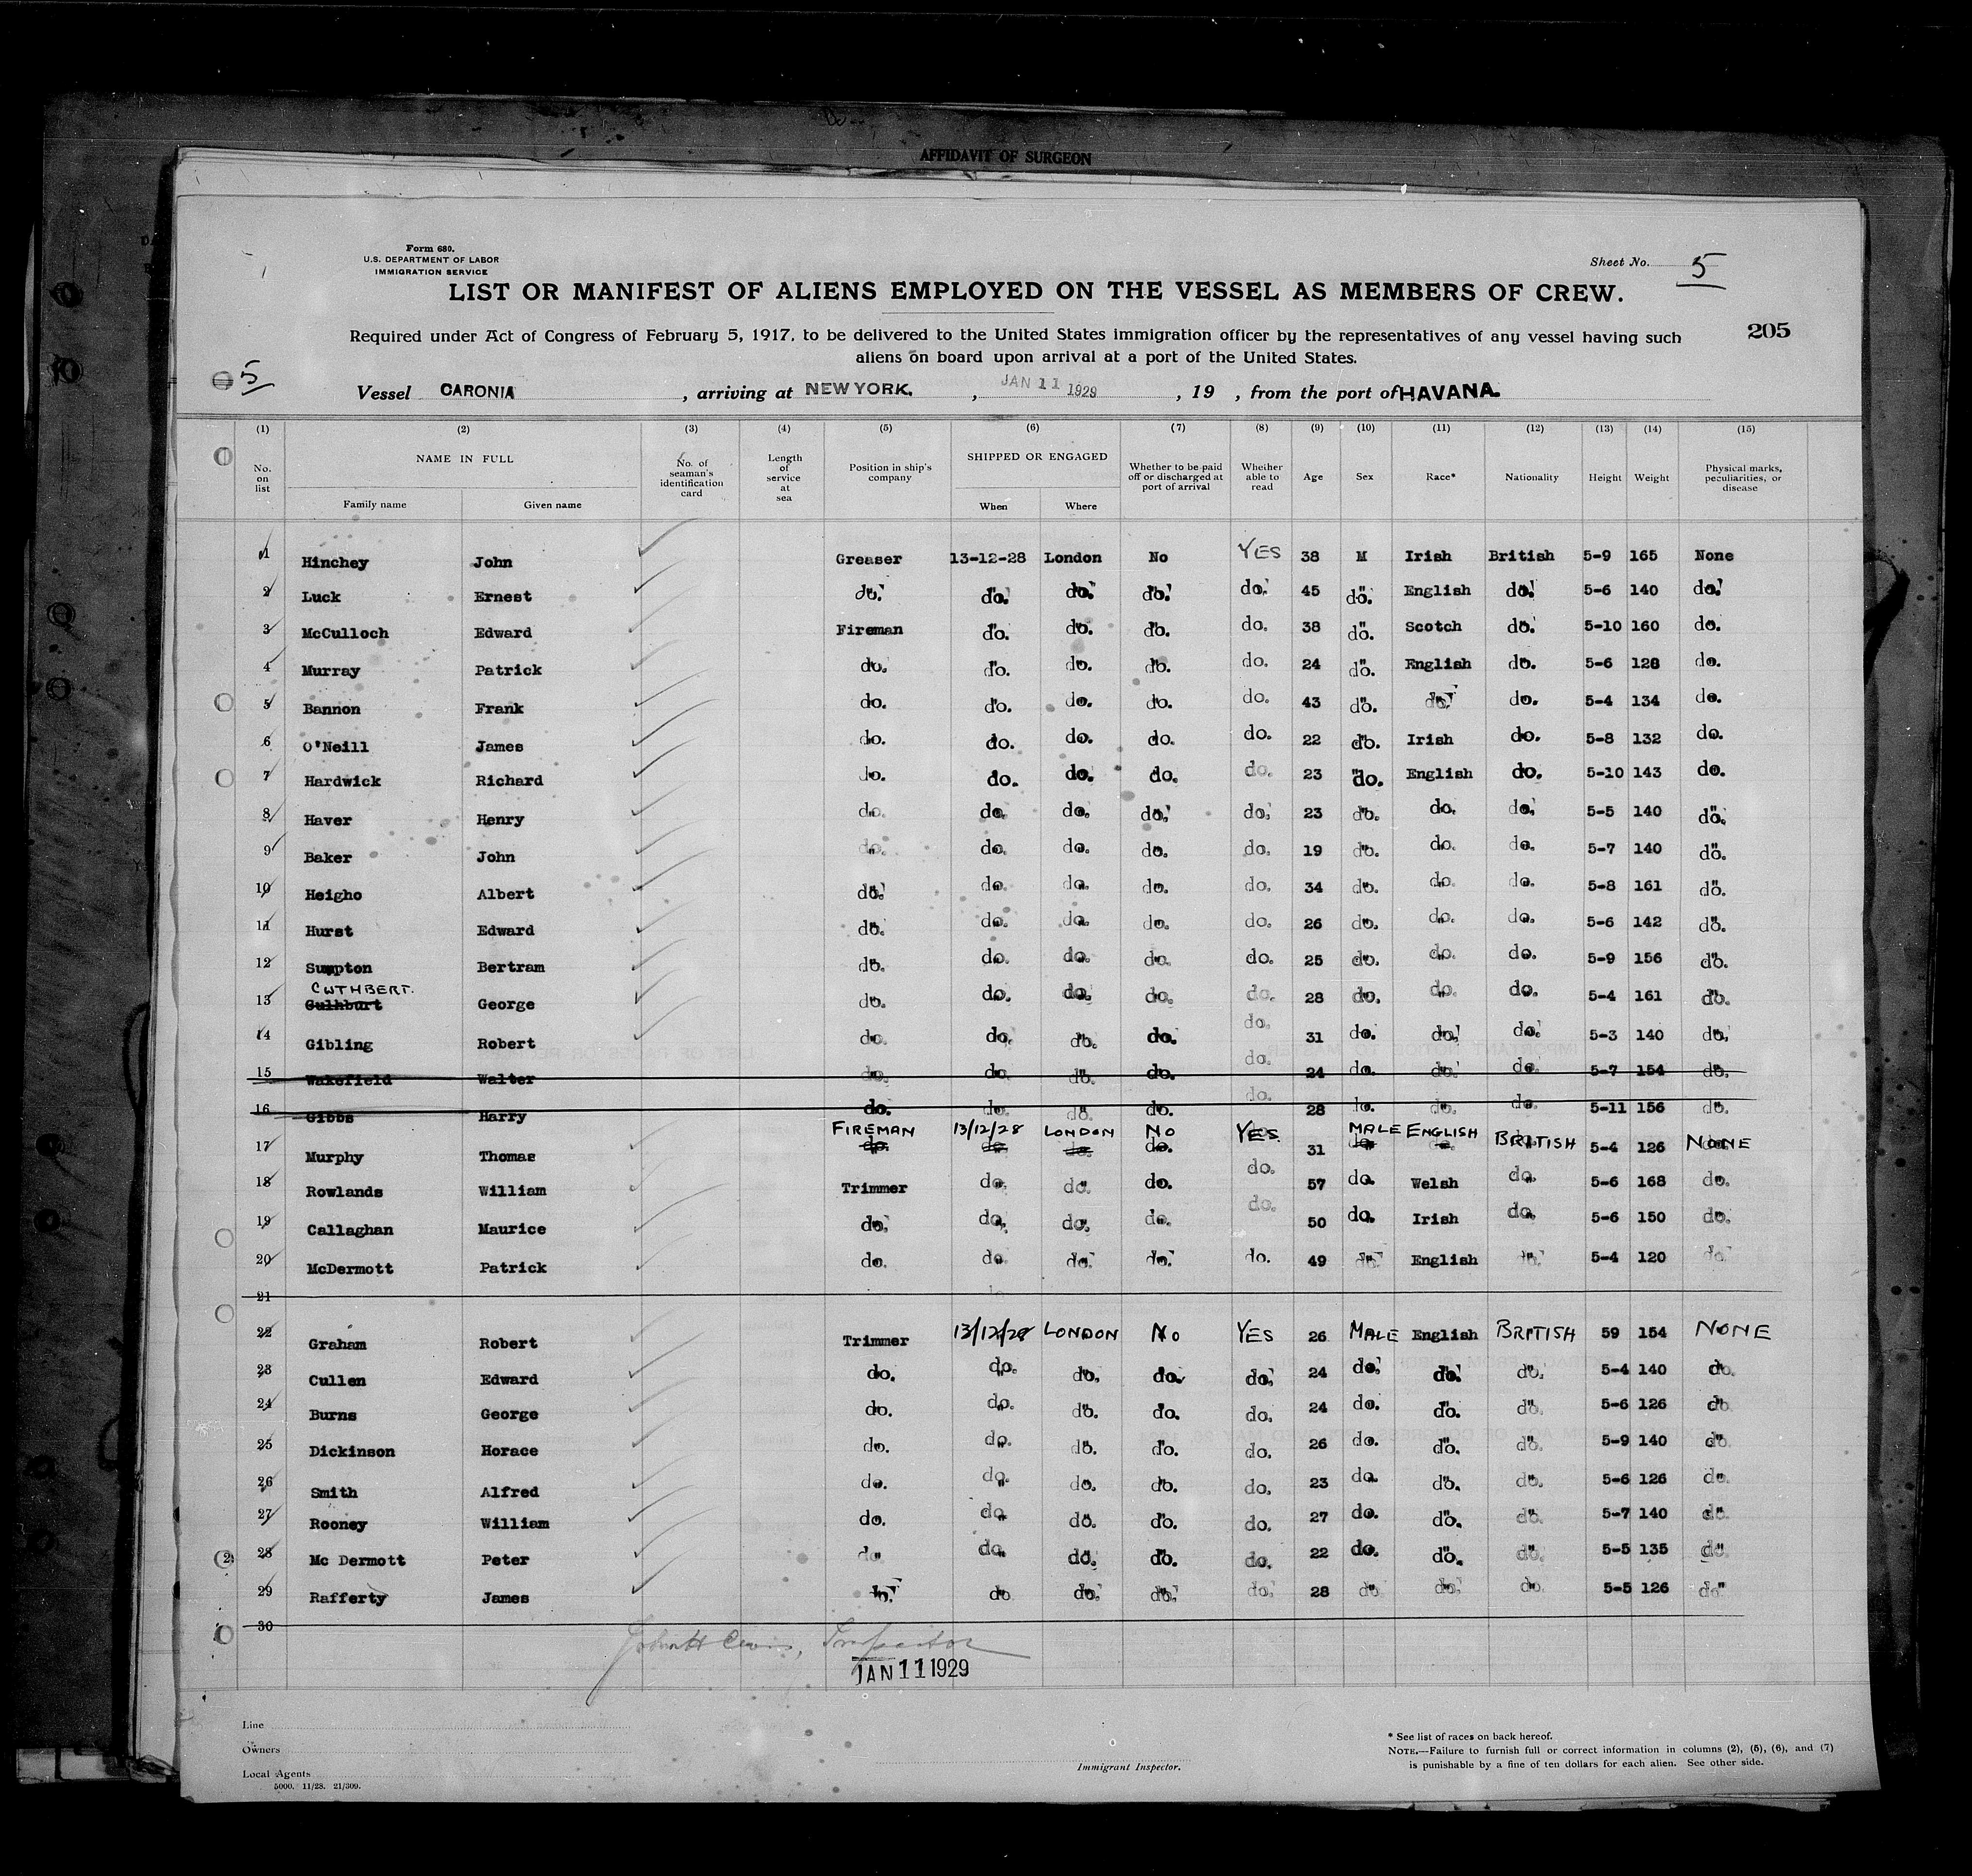 AFFIDAVIT OF SURGEON
Form 680.
U.S. DEPARTMENT OF LABOR
IMMIGRATION SERVICE
Sheet No. 5
LIST OR MANIFEST OF ALIENS EMPLOYED ON THE VESSEL AS MEMBERS OF CREW.
205
Required under Act of Congress of February 5, 1917, to be delivered to the United States immigration officer by the representatives of any vessel having such
aliens on board upon arrival at a port of the United States.
5
Vessel CARONIA , arriving at NEW YORK. , JAN 11 1929 , 19 , from the port of HAVANA.
(1) (2) (3) (4) (5) (6) (7) (8) (9) (10) (11) (12) (13) (14) (15)
No. on list NAME IN FULL Family name Given name No. of seaman's identification card Length of service at sea Position in ship's company SHIPPED OR ENGAGED When Where Whether to be paid off or discharged at port of arrival Whether able to read Age Sex Race* Nationality Height Weight Physical marks, peculiarities, or disease
1 Hinchey John Greaser 13-12-28 London No YES 38 M Irish British 5-9 165 None
2 Luck Ernest do. do. do. do. do. 45 do. English do. 5-6 140 do.
3 McCulloch Edward Fireman do. do. do. do. 38 do. Scotch do. 5-10 160 do.
4 Murray Patrick do. do. do. do. do. 24 do. English do. 5-6 128 do.
5 Bannon Frank do. do. do. do. do. 43 do. do. do. 5-4 134 do.
6 O'Neill James do. do. do. do. do. 22 do. Irish do. 5-8 132 do.
7 Hardwick Richard do. do. do. do. do. 23 do. English do. 5-10 143 do.
8 Haver Henry do. do. do. do. do. 23 do. do. do. 5-5 140 do.
9 Baker John do. do. do. do. do. 19 do. do. do. 5-7 140 do.
10 Heigho Albert do. do. do. do. do. 34 do. do. do. 5-8 161 do.
11 Hurst Edward do. do. do. do. do. 26 do. do. do. 5-6 142 do.
12 Sumpton Bertram do. do. do. do. do. 25 do. do. do. 5-9 156 do.
CUTHBERT.
13 Culhburt George do. do. do. do. do. 28 do. do. do. 5-4 161 do.
14 Gibling Robert do. do. do. do. do. 31 do. do. do. 5-3 140 do.
15 Wakefield Walter do. do. do. do. do. 24 do. do. do. 5-7 154 do.
16 Gibbs Harry do. do. do. do. do. 28 do. do. do. 5-11 156 do.
FIREMAN 13/12/28 LONDON NO YES. MALE ENGLISH BRITISH NONE
17 Murphy Thomas do. do. do. do. 31 do. do. 5-4 126
18 Rowlands William Trimmer do. do. do. do. 57 do. Welsh do. 5-6 168 do.
19 Callaghan Maurice do. do. do. do. do. 50 do. Irish do. 5-6 150 do.
20 McDermott Patrick do. do. do. do. do. 49 do. English do. 5-4 120 do.
21
22 Graham Robert Trimmer 13/12/28 LONDON No YES 26 MALE English BRITISH 59 154 NONE
23 Cullen Edward do. do. do. do. do. 24 do. do. do. 5-4 140 do.
24 Burns George do. do. do. do. do. 24 do. do. do. 5-6 126 do.
25 Dickinson Horace do. do. do. do. do. 26 do. do. do. 5-9 140 do.
26 Smith Alfred do. do. do. do. do. 23 do. do. do. 5-6 126 do.
27 Rooney William do. do. do. do. do. 27 do. do. do. 5-7 140 do.
28 Mc Dermott Peter do. do. do. do. do. 22 do. do. do. 5-5 135 do.
29 Rafferty James do. do do. do. do. 28 do do. do. 5-5 126 do
30
Inspector
JAN 11 1929
Line
Owners
Local Agents
5000. 11/28. 21/309.
Immigrant Inspector.
* See list of races on back hereof.
NOTE.—Failure to furnish full or correct information in columns (2), (5), (6), and (7)
is punishable by a fine of ten dollars for each alien. See other side.